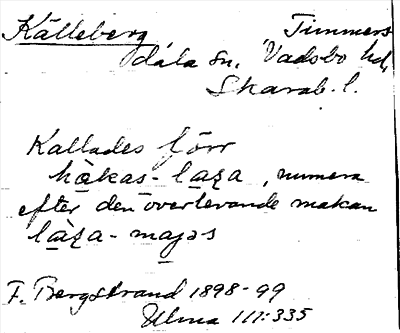 Källeberg Timmers
dala sn, Vadsbo hd,
Skarab. l.
Kallades förr
håkas-laʒa, numera
efter den överlevande makan
làʒa-majas
F. Bergstrand 1898-99
Ulma 111:335